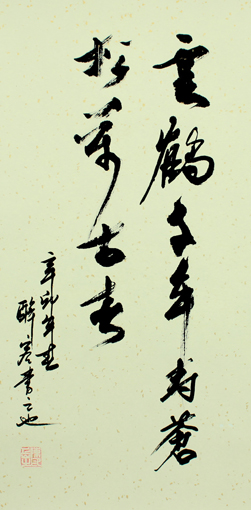 雲鶴千年壽蒼
松萬古春
辛卯年春
醉寒書之也